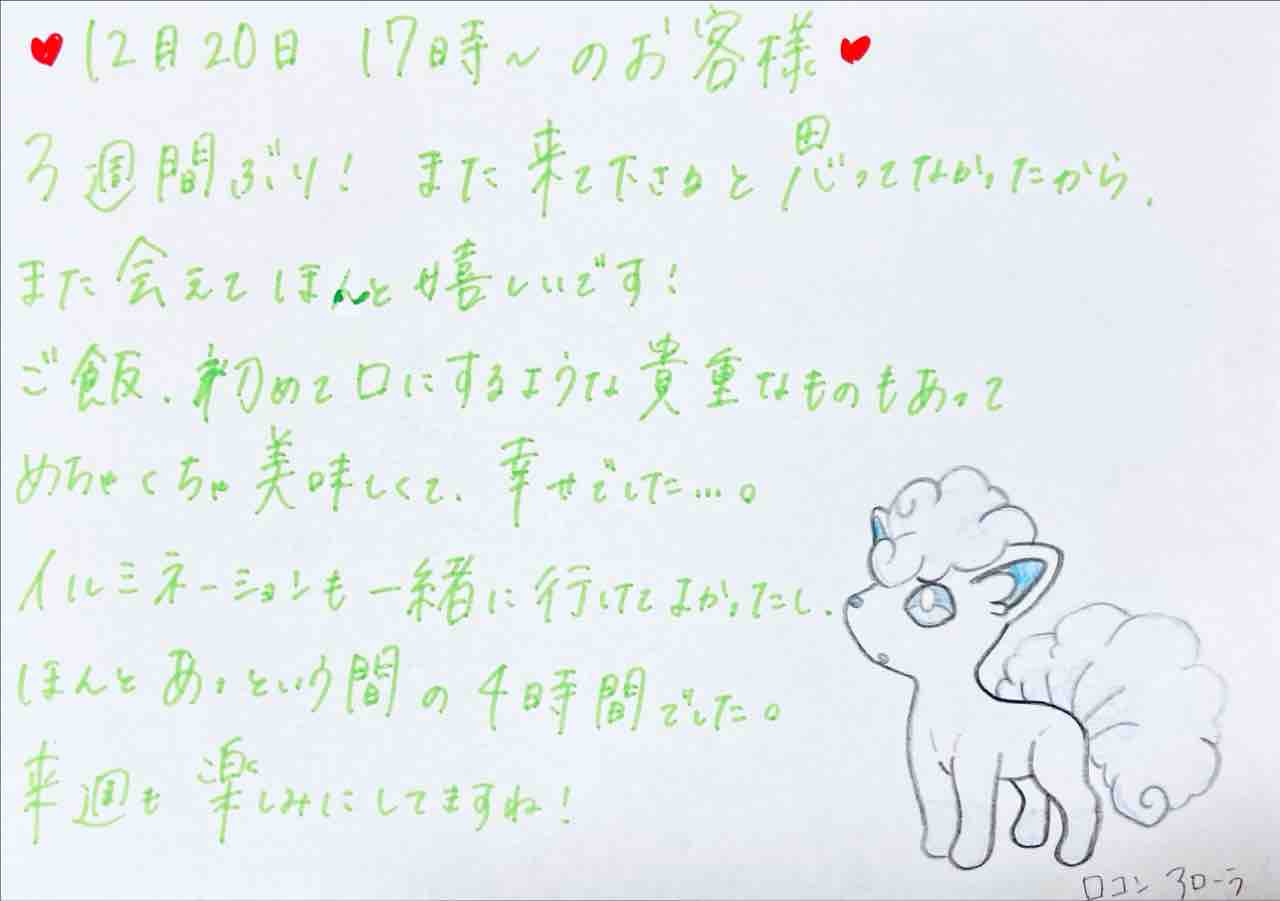 ♥12月20日 17時~のお客様♥
3週間ぶり! また来て下さると思ってなかったから、
また会えてほんと嬉しいです!
ご飯、初めて口にするような貴重なものもあって
めちゃくちゃ美味しくて、幸せでした…。
イルミネーションも一緒に行けてよかったし、
ほんとあっという間の4時間でした。
来週も楽しみにしてますね!
ロコン アローラ